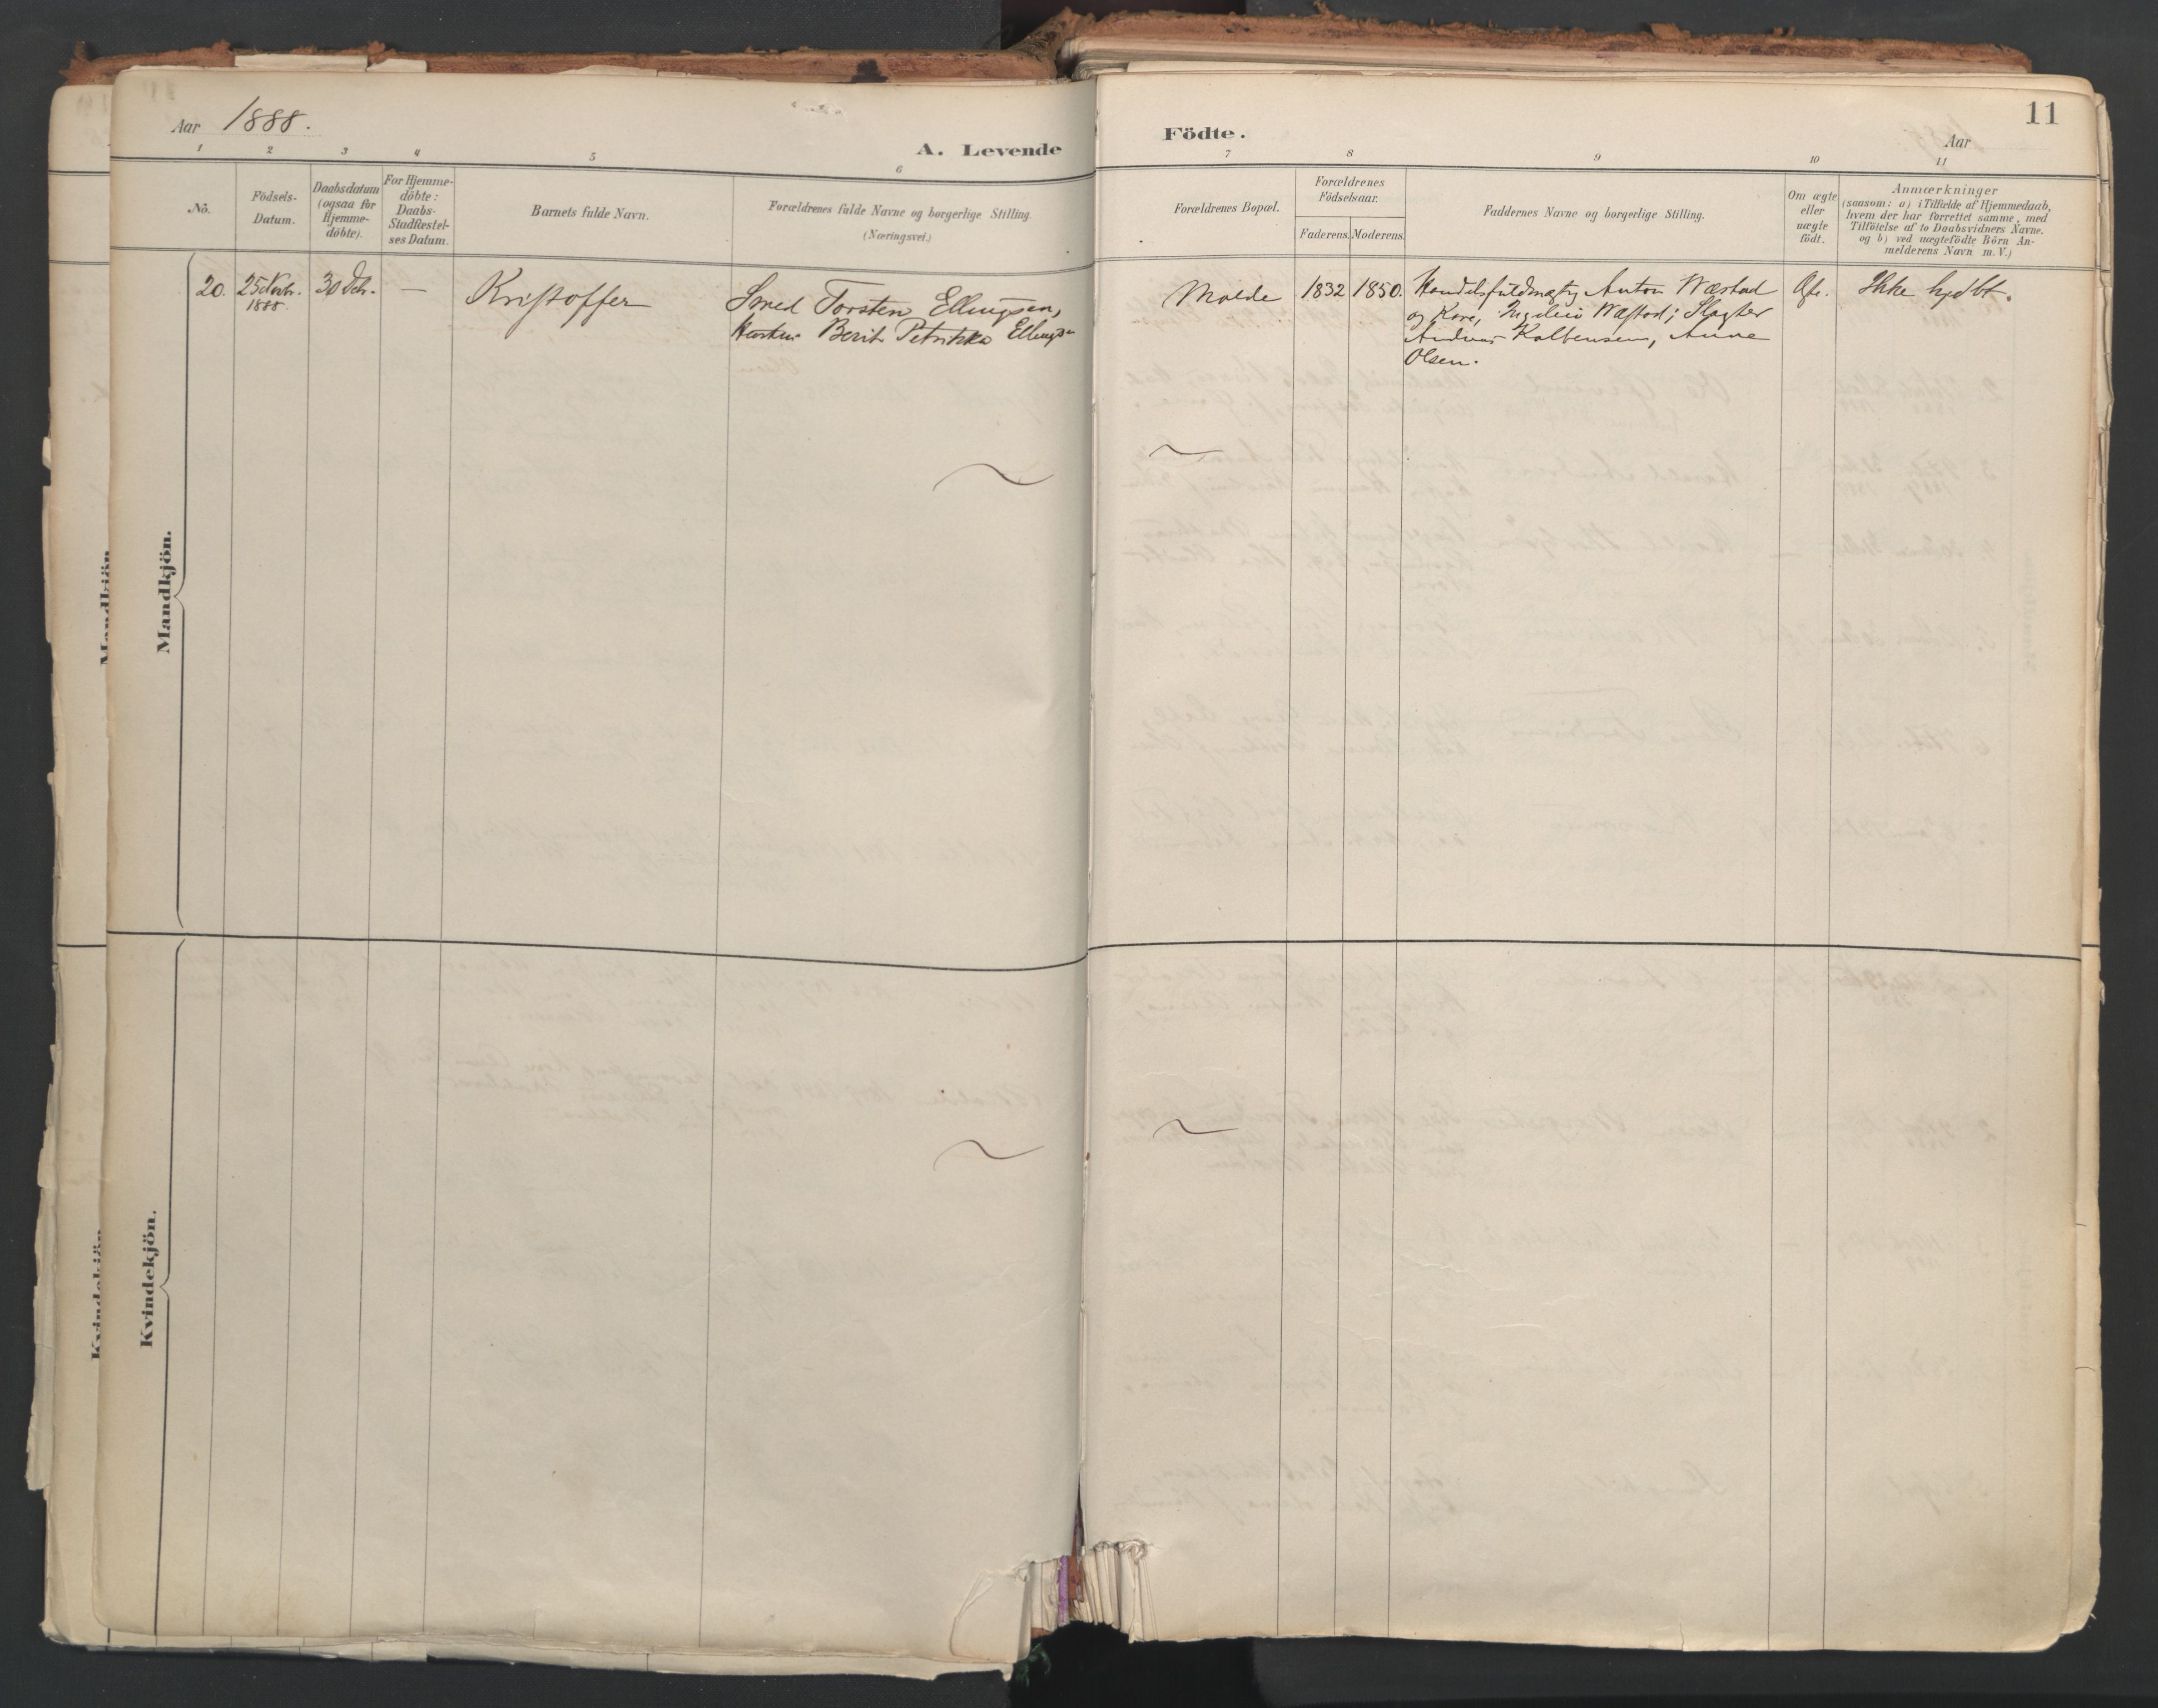 Aar 1888.
A. Levende
Födte.
Aar
11
1 2 3 4 5 6 7 8 9 10 11
No.
Födsels-
Datum.
Daabsdatum
(ogsaa for
Hjemme-
döbte).
For Hjemme-
döbte:
Daabs-
Stadfæstel-
ses Datum.
Barnets fulde Navn.
Forældrenes fulde Navne og borgerlige Stilling.
(Næringsvei.)
Forældrenes Bopæl.
Forældrenes
Födselsaar.
Faderens. Moderens.
Faddernes Navne og borgerlige Stilling.
Om ægte
eller
uægte
födt.
Anmærkninger
(saasom: a) i Tilfælde af Hjemmedaab,
hvem der har forrettet samme, med
Tilföielse af to Daabsvidners Navne.
og b) ved uægtefödte Börn An-
melderens Navn m.V.)
20. 25 Novbr. 30 Dcbr. — Kristoffer Smed Torsten Ellingsen, Molde 1832 1850. Handelsfuldmægtig Anton Wæstad Ægte. Ikke hjdbt.
1888.
Hustru Berit Petrikka Ellingsen
og Kone, Wæstad; Slagter
Andreas Kolbensen, Anne
Olsen.
Mandkjön.
Kvindekjön.
Mandkjön
Kvindekjön